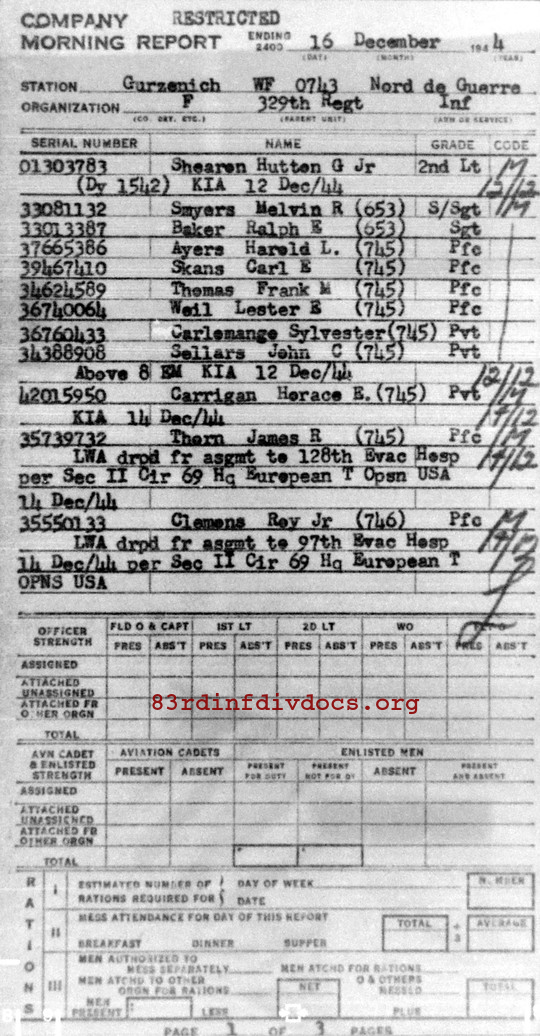 COMPANY RESTRICTED
MORNING REPORT ENDING 2400 16 December 1944
(DAY) (MONTH) (YEAR)
STATION Gurzenich WF 0743 Nord de Guerre
ORGANIZATION F 329th Regt Inf
(CO. DET. ETC.) (PARENT UNIT) (ARM OR SERVICE)
SERIAL NUMBER NAME GRADE CODE
01303783 Shearon Hutton G Jr 2nd Lt
(Dy 1542) KIA 12 Dec/44 12/12
33081132 Smyers Melvin R (653) S/Sgt
33013387 Baker Ralph E (653) Sgt
37665386 Ayers Harold L. (745) Pfc
39467410 Skans Carl E (745) Pfc
34624589 Thomas Frank M (745) Pfc
36740064 Weil Lester E (745) Pfc
36760433 Carlemange Sylvester(745) Pvt
34388908 Sellars John C (745) Pvt
Above 8 EM KIA 12 Dec/44 12/12
42015950 Carrigan Horace E. (745) Pvt
KIA 14 Dec/44
35739732 Thorn James R (745) Pfc
LWA drpd fr asgmt to 128th Evac Hosp
per Sec II Cir 69 Hq European T Opsn USA
14 Dec/44
35550133 Clemens Roy Jr (746) Pfc
LWA drpd fr asgmt to 97th Evac Hosp
14 Dec/44 per Sec II Cir 69 Hq European T
OPNS USA
OFFICER STRENGTH FLD O & CAPT 1ST LT 2D LT WO
PRES ABS'T PRES ABS'T PRES ABS'T PRES ABS'T PRES ABS'T
ASSIGNED
ATTACHED UNASSIGNED
ATTACHED FR OTHER ORGN
83rdinfdivdocs.org
TOTAL
AVN CADET & ENLISTED STRENGTH AVIATION CADETS ENLISTED MEN
PRESENT ABSENT PRESENT FOR DUTY PRESENT NOT FOR DY ABSENT PRESENT AND ABSENT
ASSIGNED
ATTACHED UNASSIGNED
ATTACHED FR OTHER ORGN
TOTAL
RATIONS
I ESTIMATED NUMBER OF DAY OF WEEK NUMBER
RATIONS REQUIRED FOR DATE
II MESS ATTENDANCE FOR DAY OF THIS REPORT TOTAL ÷ 3 AVERAGE
BREAKFAST DINNER SUPPER
III MEN AUTHORIZED TO MESS SEPARATELY MEN ATCHD FOR RATIONS
MEN ATCHD TO OTHER ORGN FOR RATIONS NET O & OTHERS MESSED TOTAL
MEN PRESENT LESS PLUS
PAGE 1 OF 3 PAGES